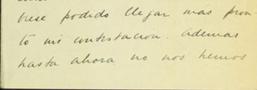 biese podido llegar mas pron
to mi contestacion. Ademas
hasta ahora no nos hemos